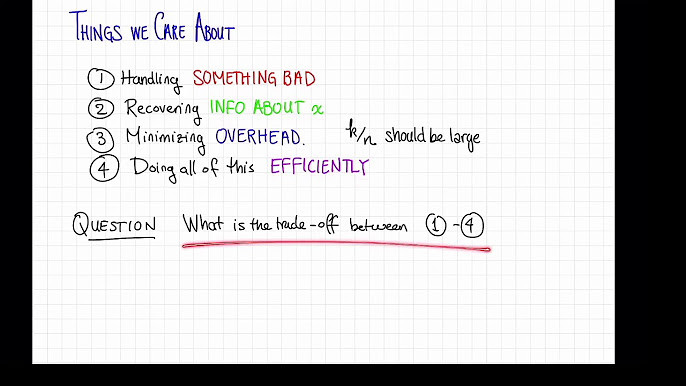 THINGS WE CARE ABOUT
① Handling SOMETHING BAD
② Recovering INFO ABOUT x
③ Minimizing OVERHEAD. k/n should be large
④ Doing all of this EFFICIENTLY
QUESTION What is the trade-off between ① - ④